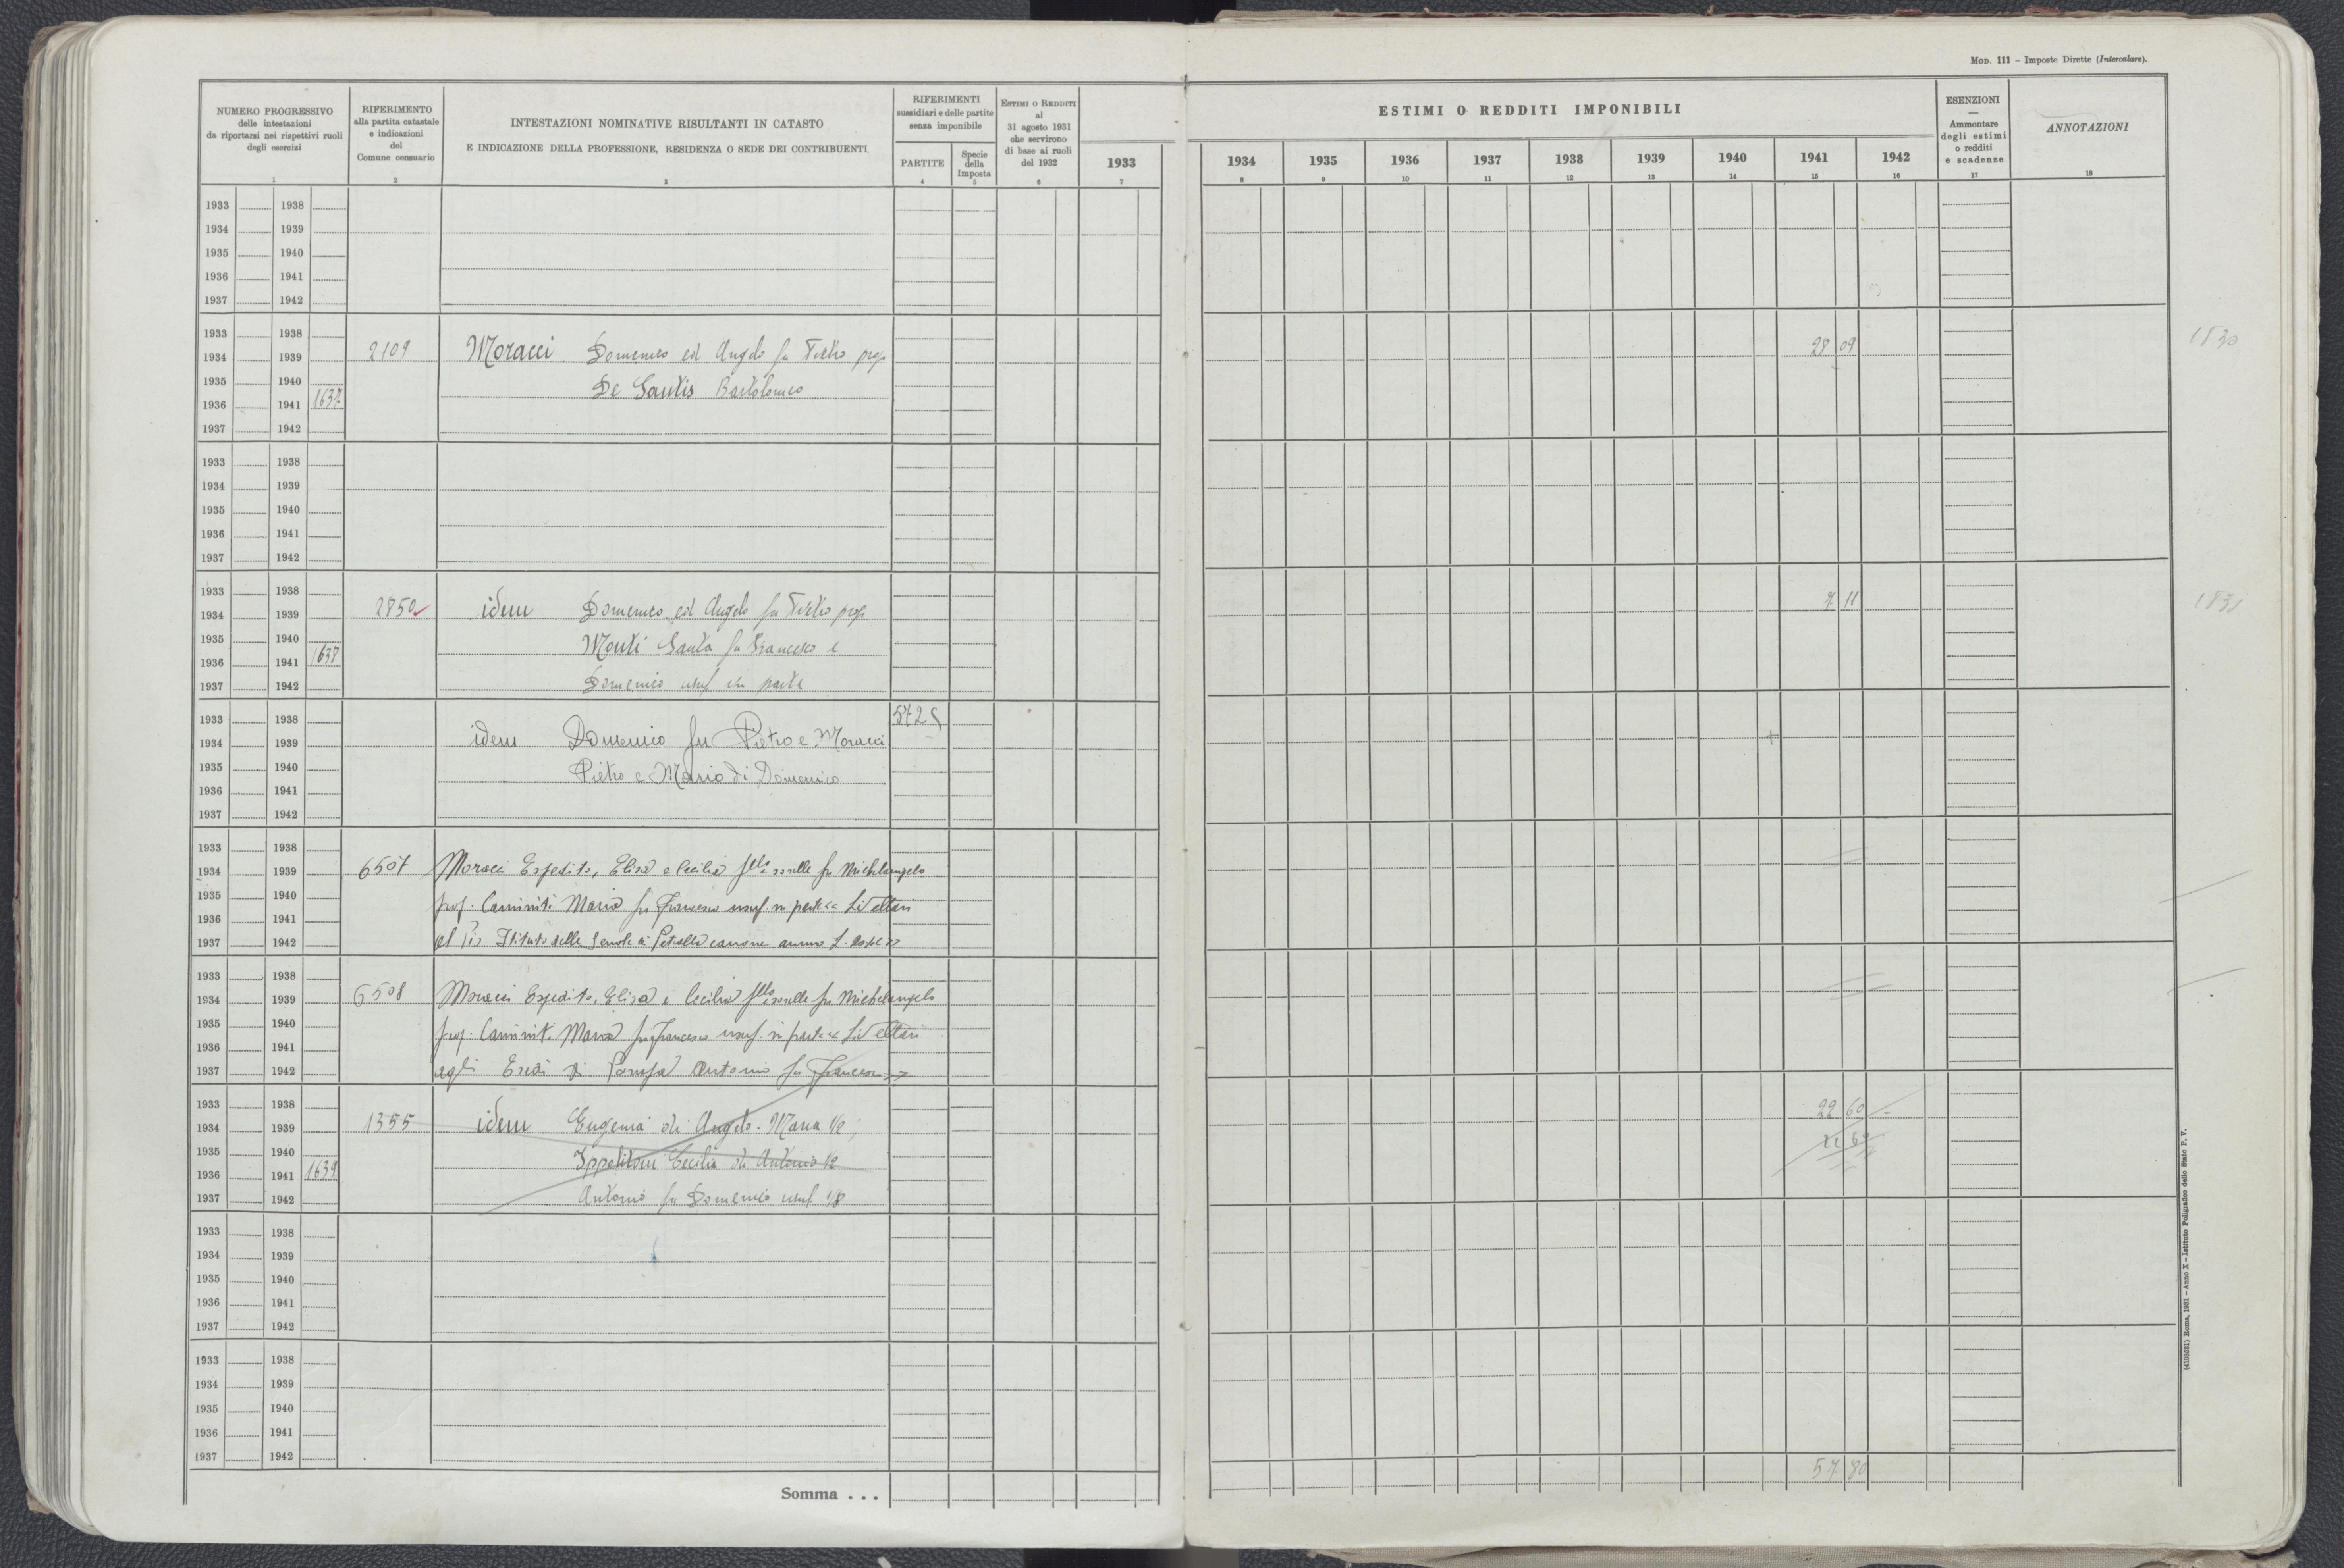 MOD. 111 – Imposte Dirette (Intercalare).
NUMERO PROGRESSIVO
delle intestazioni
da riportarsi nei rispettivi ruoli
degli esercizi
1
RIFERIMENTO
alla partita catastale
e indicazioni
del
Comune censuario
2
INTESTAZIONI NOMINATIVE RISULTANTI IN CATASTO
E INDICAZIONE DELLA PROFESSIONE, RESIDENZA O SEDE DEI CONTRIBUENTI
3
RIFERIMENTI
sussidiari e delle partite
senza imponibile
PARTITE
4
Specie
della
Imposta
5
ESTIMI O REDDITI
al
31 agosto 1931
che servirono
di base ai ruoli
del 1932
6
ESTIMI O REDDITI IMPONIBILI
1933 1934 1935 1936 1937 1938 1939 1940 1941 1942
7 8 9 10 11 12 13 14 15 16
ESENZIONI
—
Ammontare
degli estimi
o redditi
e scadenze
17
ANNOTAZIONI
18
1933 1938
1934 1939
1935 1940
1936 1941
1937 1942
1933 1938
1934 1939 2109 Moracci Domenico ed Angelo fu Pietro prop 28 09 1830
1935 1940 De Santis Bartolomeo
1936 1941 1637
1937 1942
1933 1938
1934 1939
1935 1940
1936 1941
1937 1942
1933 1938
1934 1939 2850 idem Domenico ed Angelo fu Pietro prop 7 11 1831
1935 1940 Monti Santa fu Francesco e
1936 1941 1638
1937 1942 Domenico usuf in parte
1933 1938 5725
1934 1939 idem Domenico fu Pietro e Moracci
1935 1940 Pietro e Mario di Domenico
1936 1941
1937 1942
1933 1938
1934 1939 6507 Moracci Espedito, Elisa e Cecilia f.llo e sorelle fu Michelangelo
1935 1940 prop. Caminiti Maria fu Francesco usuf. in parte << Livellari
1936 1941
1937 1942 al Pio Istituto delle Scuole di Petrella canone annuo L.
1933 1938
1934 1939 6508 Moracci Espedito, Elisa e Cecilia f.llo e sorelle fu Michelangelo
1935 1940 prop. Caminiti Maria fu Francesco usuf. in parte << Livellari
1936 1941
1937 1942 agli Eredi di Antonio fu Francesco >>
1933 1938 22 60
1934 1939 1355 idem Eugenia di Angelo-Maria 1/2;
1935 1940 Ippolitoni Cecilia di Antonio 1/2
1936 1941 1639
1937 1942 Antonio fu Domenico usuf 1/8
1933 1938
1934 1939
1935 1940
1936 1941
1937 1942
1933 1938
1934 1939
1935 1940
1936 1941
1937 1942
Somma . . . 57 80
(4103531) Roma, 1931 – Anno X – Istituto Poligrafico dello Stato P. V.